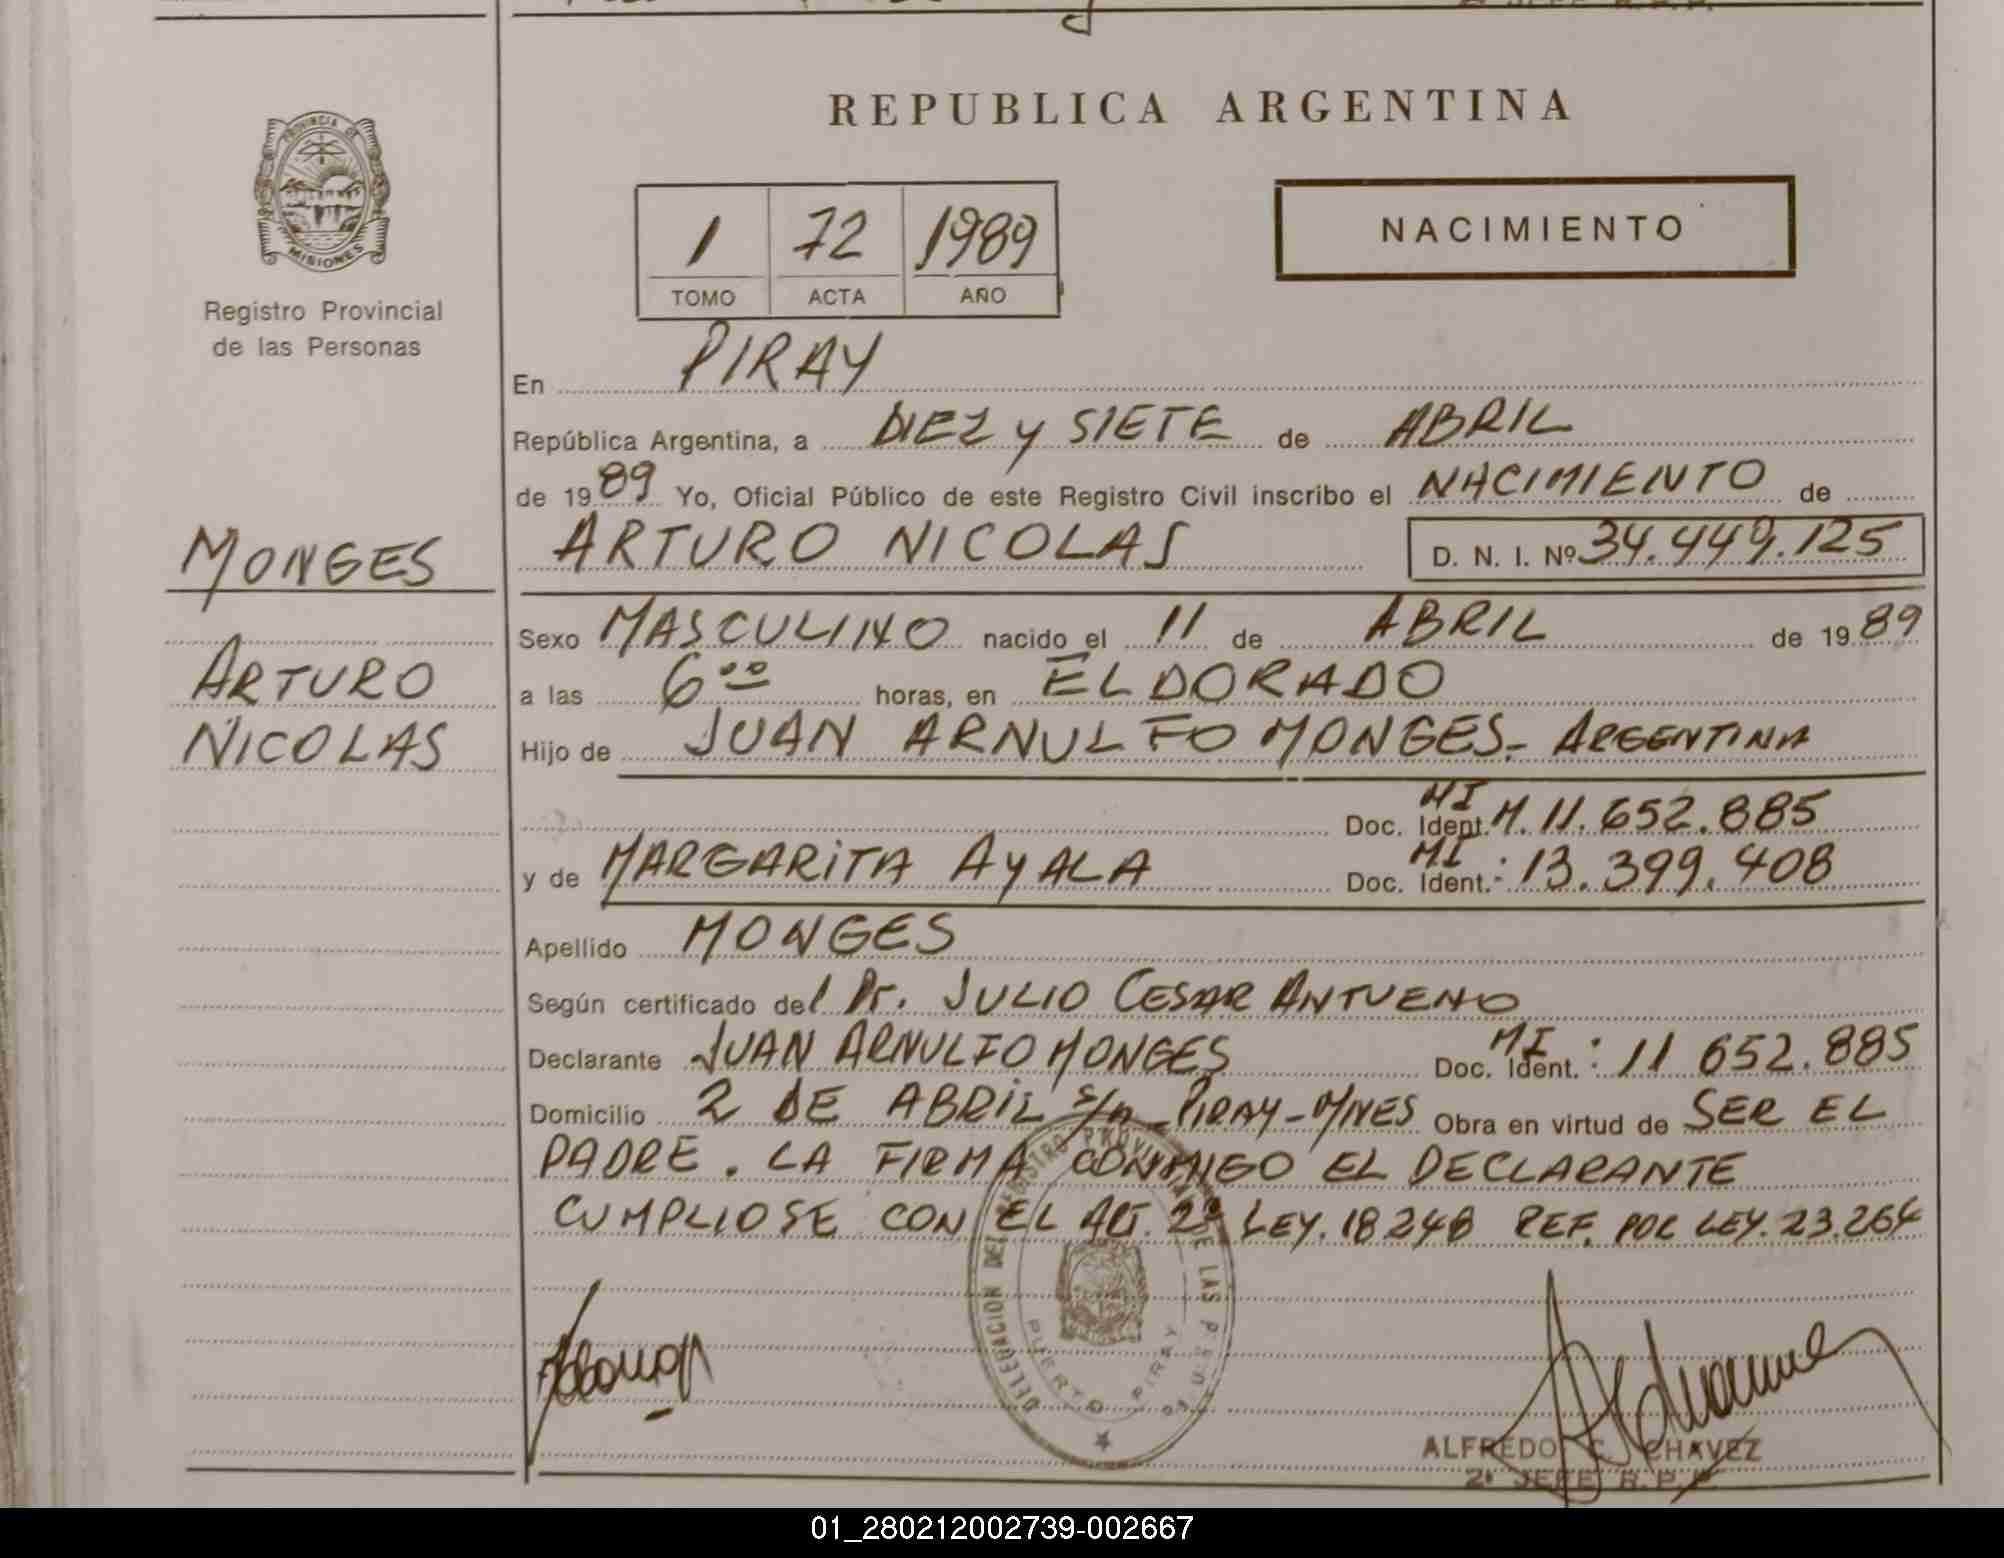 REPUBLICA ARGENTINA
PROVINCIA DE
MISIONES
Registro Provincial
de las Personas
1 72 1989
TOMO ACTA AÑO
NACIMIENTO
En PIRAY
República Argentina, a DIEZ y SIETE de ABRIL
de 1989 Yo, Oficial Público de este Registro Civil inscribo el NACIMIENTO de
MONGES
ARTURO NICOLAS D. N. I. Nº 34.449.125
Sexo MASCULINO nacido el 11 de ABRIL de 1989
ARTURO
a las 6 00 horas, en ELDORADO
NICOLAS
Hijo de JUAN ARNULFO MONGES - ARGENTINA
Doc. Ident. MI M. 11.652.885
y de MARGARITA AYALA Doc. Ident. MI: 13.399.408
Apellido MONGES
Según certificado del Dr. JULIO CESAR ANTUENO
Declarante JUAN ARNULFO MONGES Doc. Ident. MI: 11 652.885
Domicilio 2 DE ABRIL s/n - PIRAY - MNES Obra en virtud de SER EL
PADRE. LA FIRMA CONMIGO EL DECLARANTE
CUMPLIOSE CON EL ART. 2º LEY. 18248 REF. POR LEY. 23.264
DELEGACION DEL REGISTRO PROVINCIAL DE LAS P
PUERTO PIRAY
ALFREDO C. CHAVEZ
2º JEFE R.P.P.
01_280212002739-002667